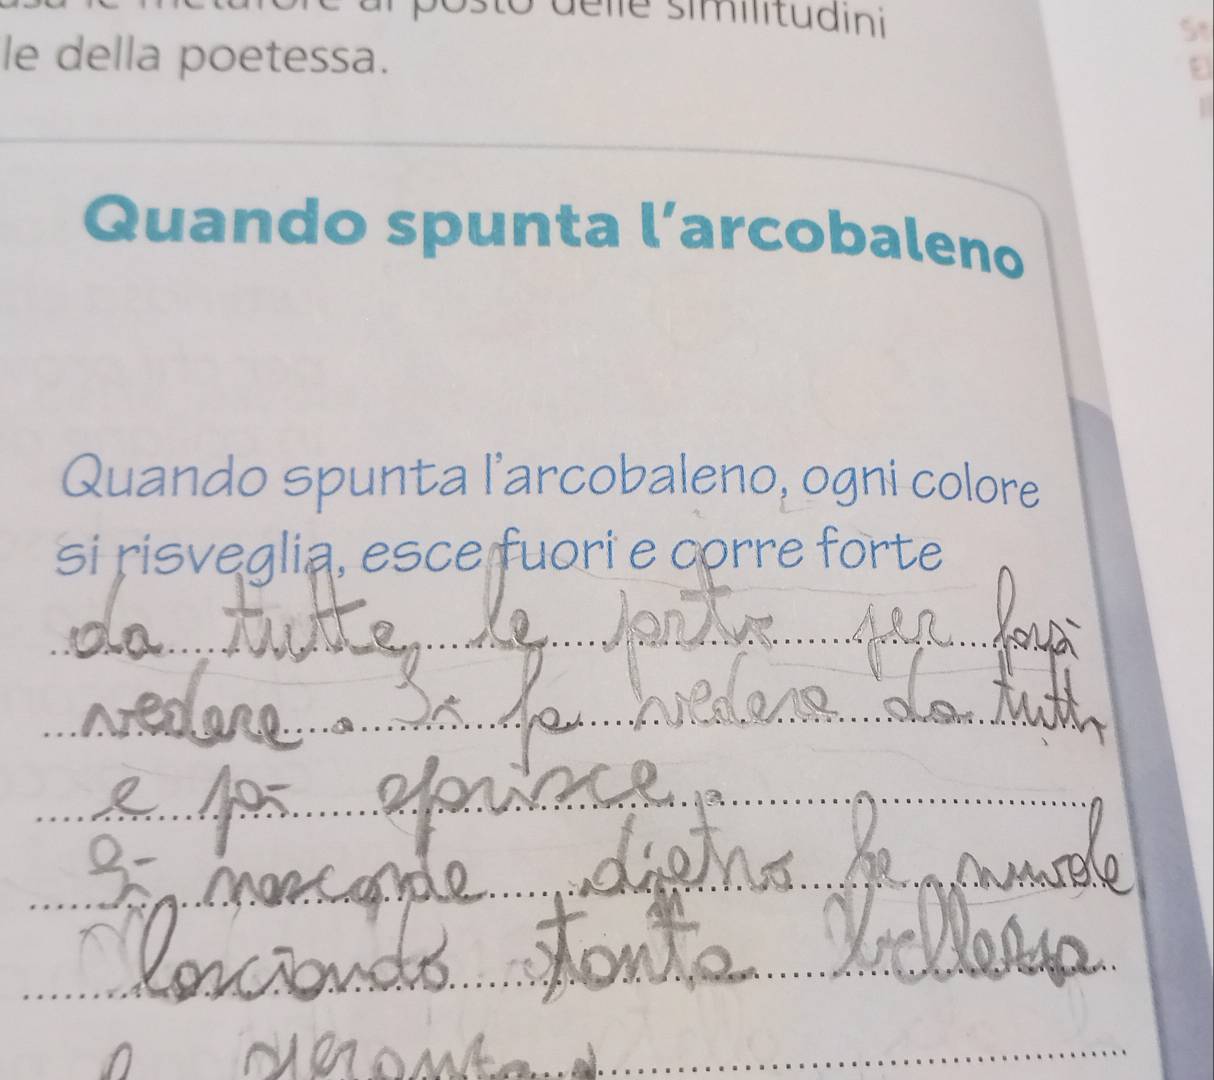 delle similitudini
le della poetessa.
Quando spunta l'arcobaleno
Quando spunta l'arcobaleno, ogni colore
si risveglia, esce fuori e corre forte
da tutte, le per farsi
vedere. Si fa vedere da tutti
e poi sparisce.
Si nasconde dietro le nuvole
lasciando tanta bellezza
e